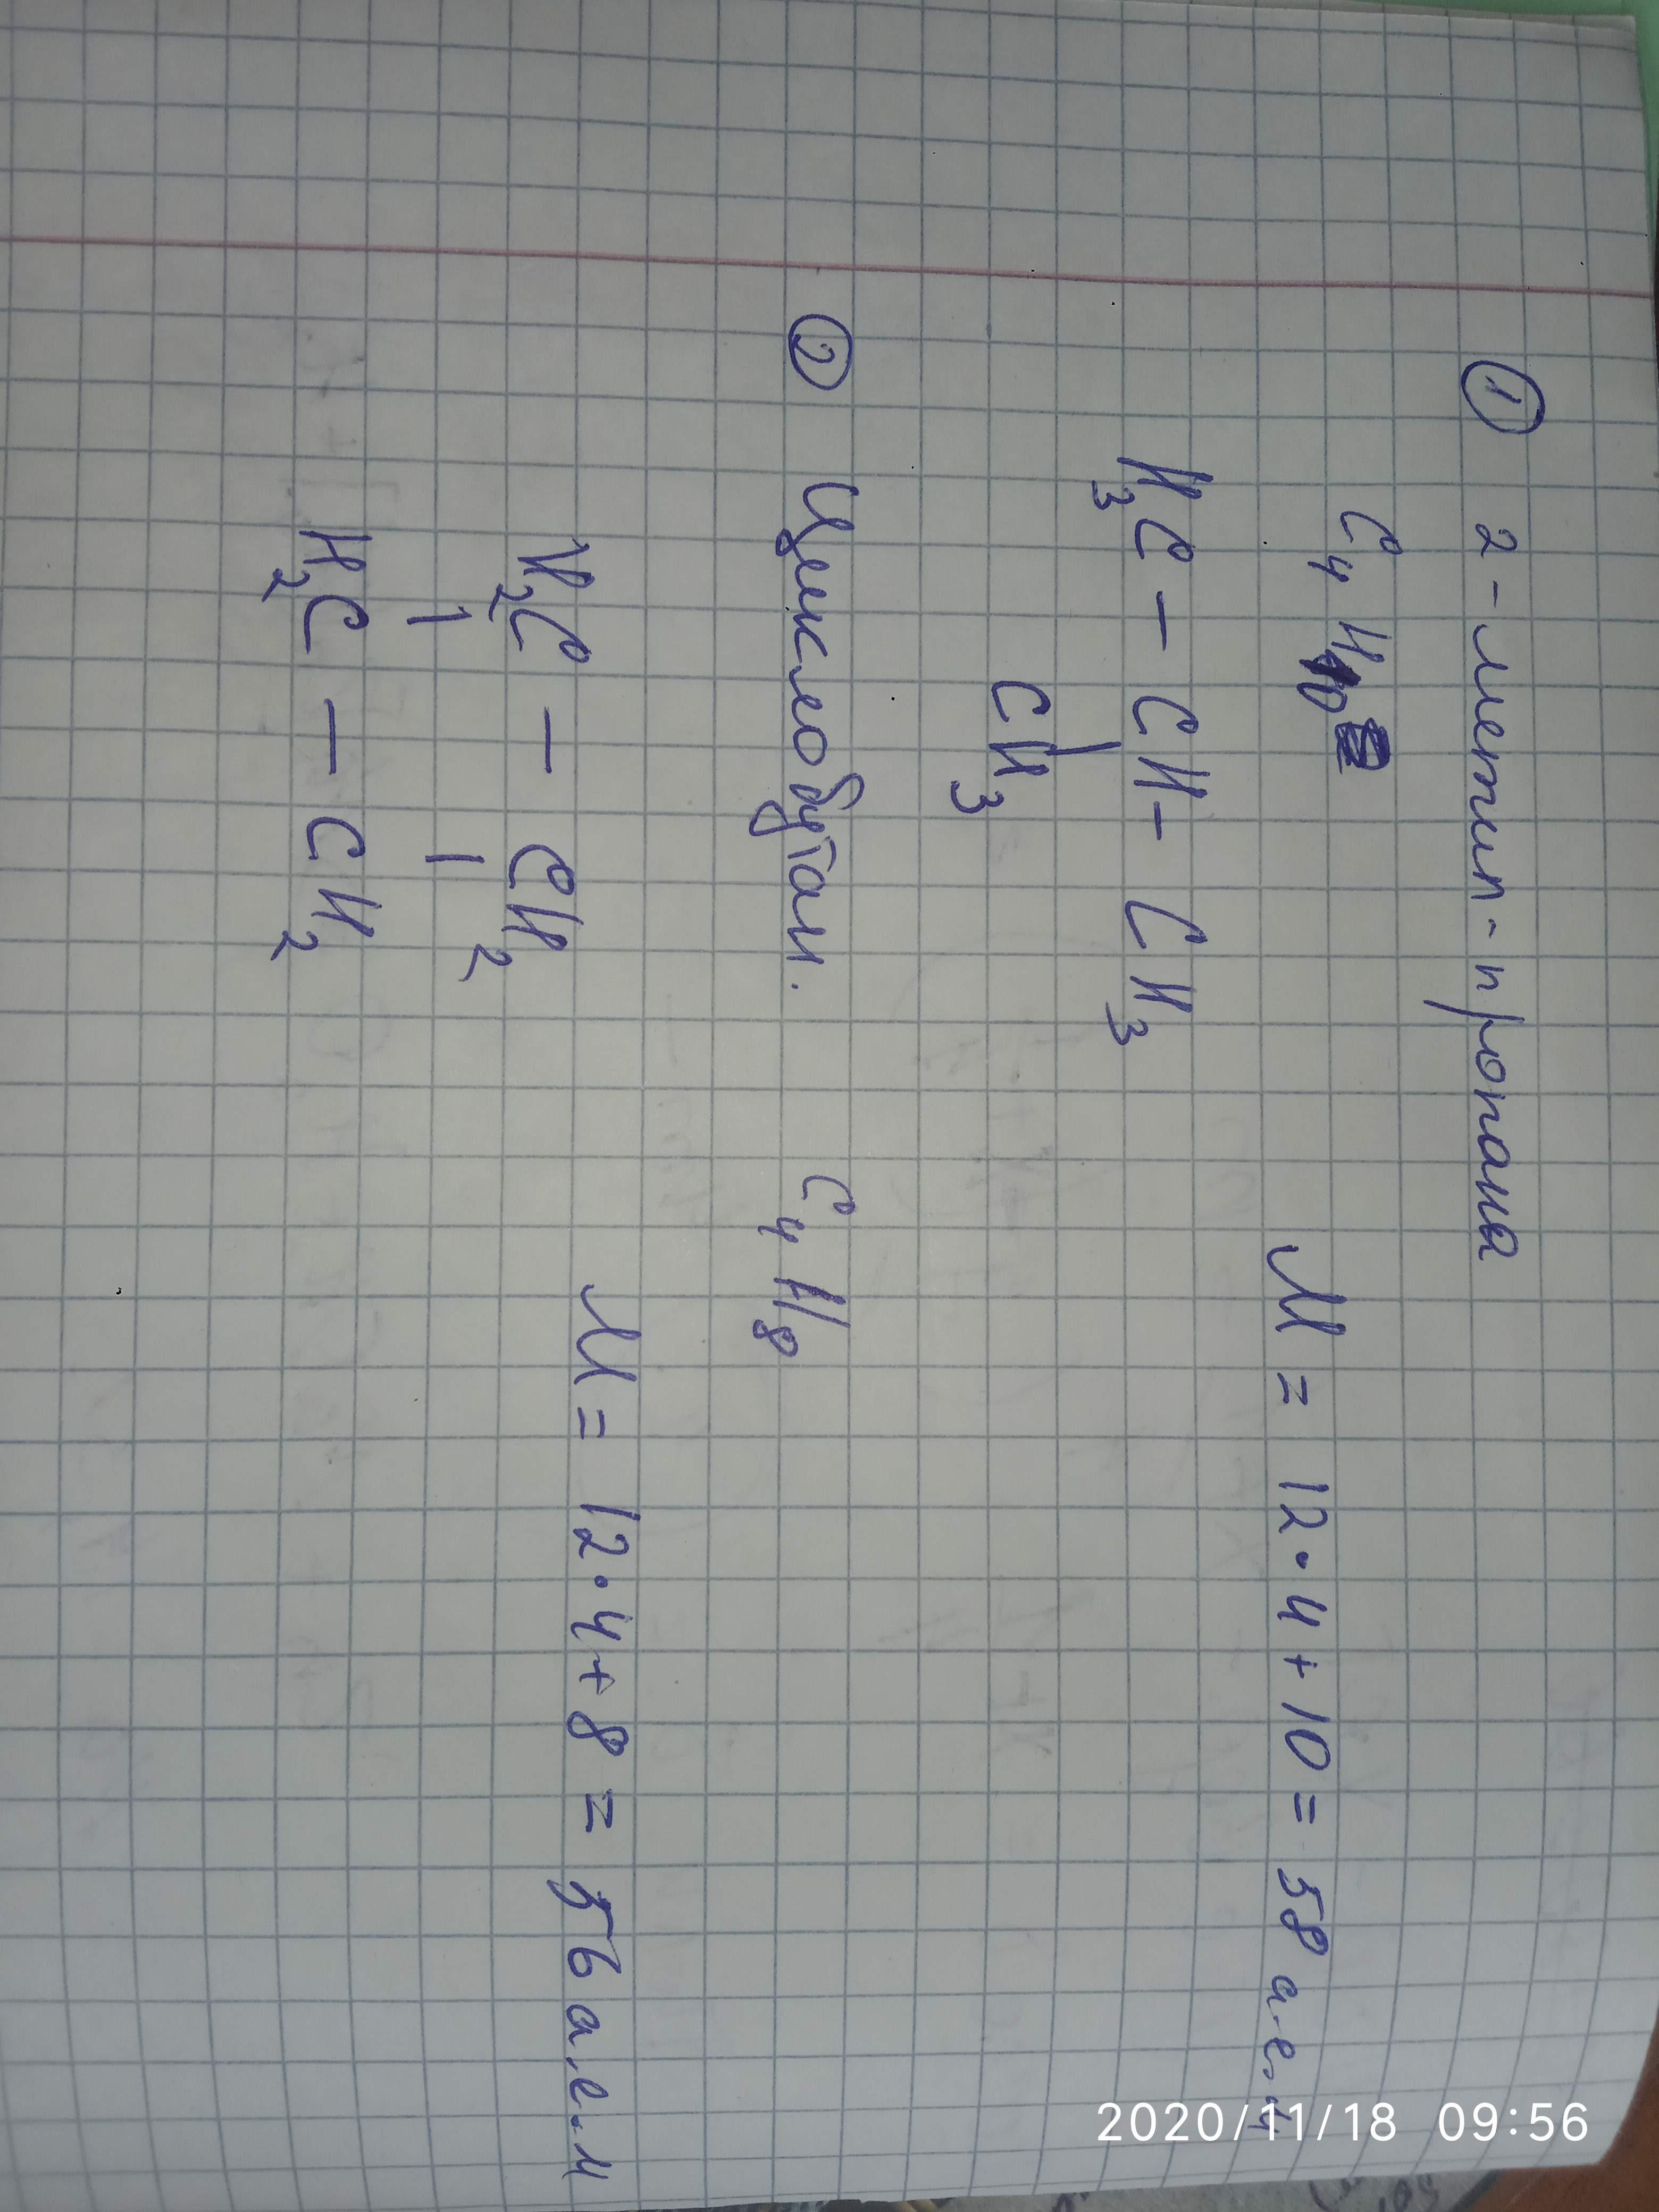 ① 2-метил-пропана
C₄H₁₀
M = 12·4+10 = 58 а.е.м
H₃C — CH — CH₃
|
CH₃
② Циклобутан. C₄H₈
M = 12·4+8 = 56 а.е.м
H₂C — CH₂
| |
H₂C — CH₂
2020/11/18 09:56